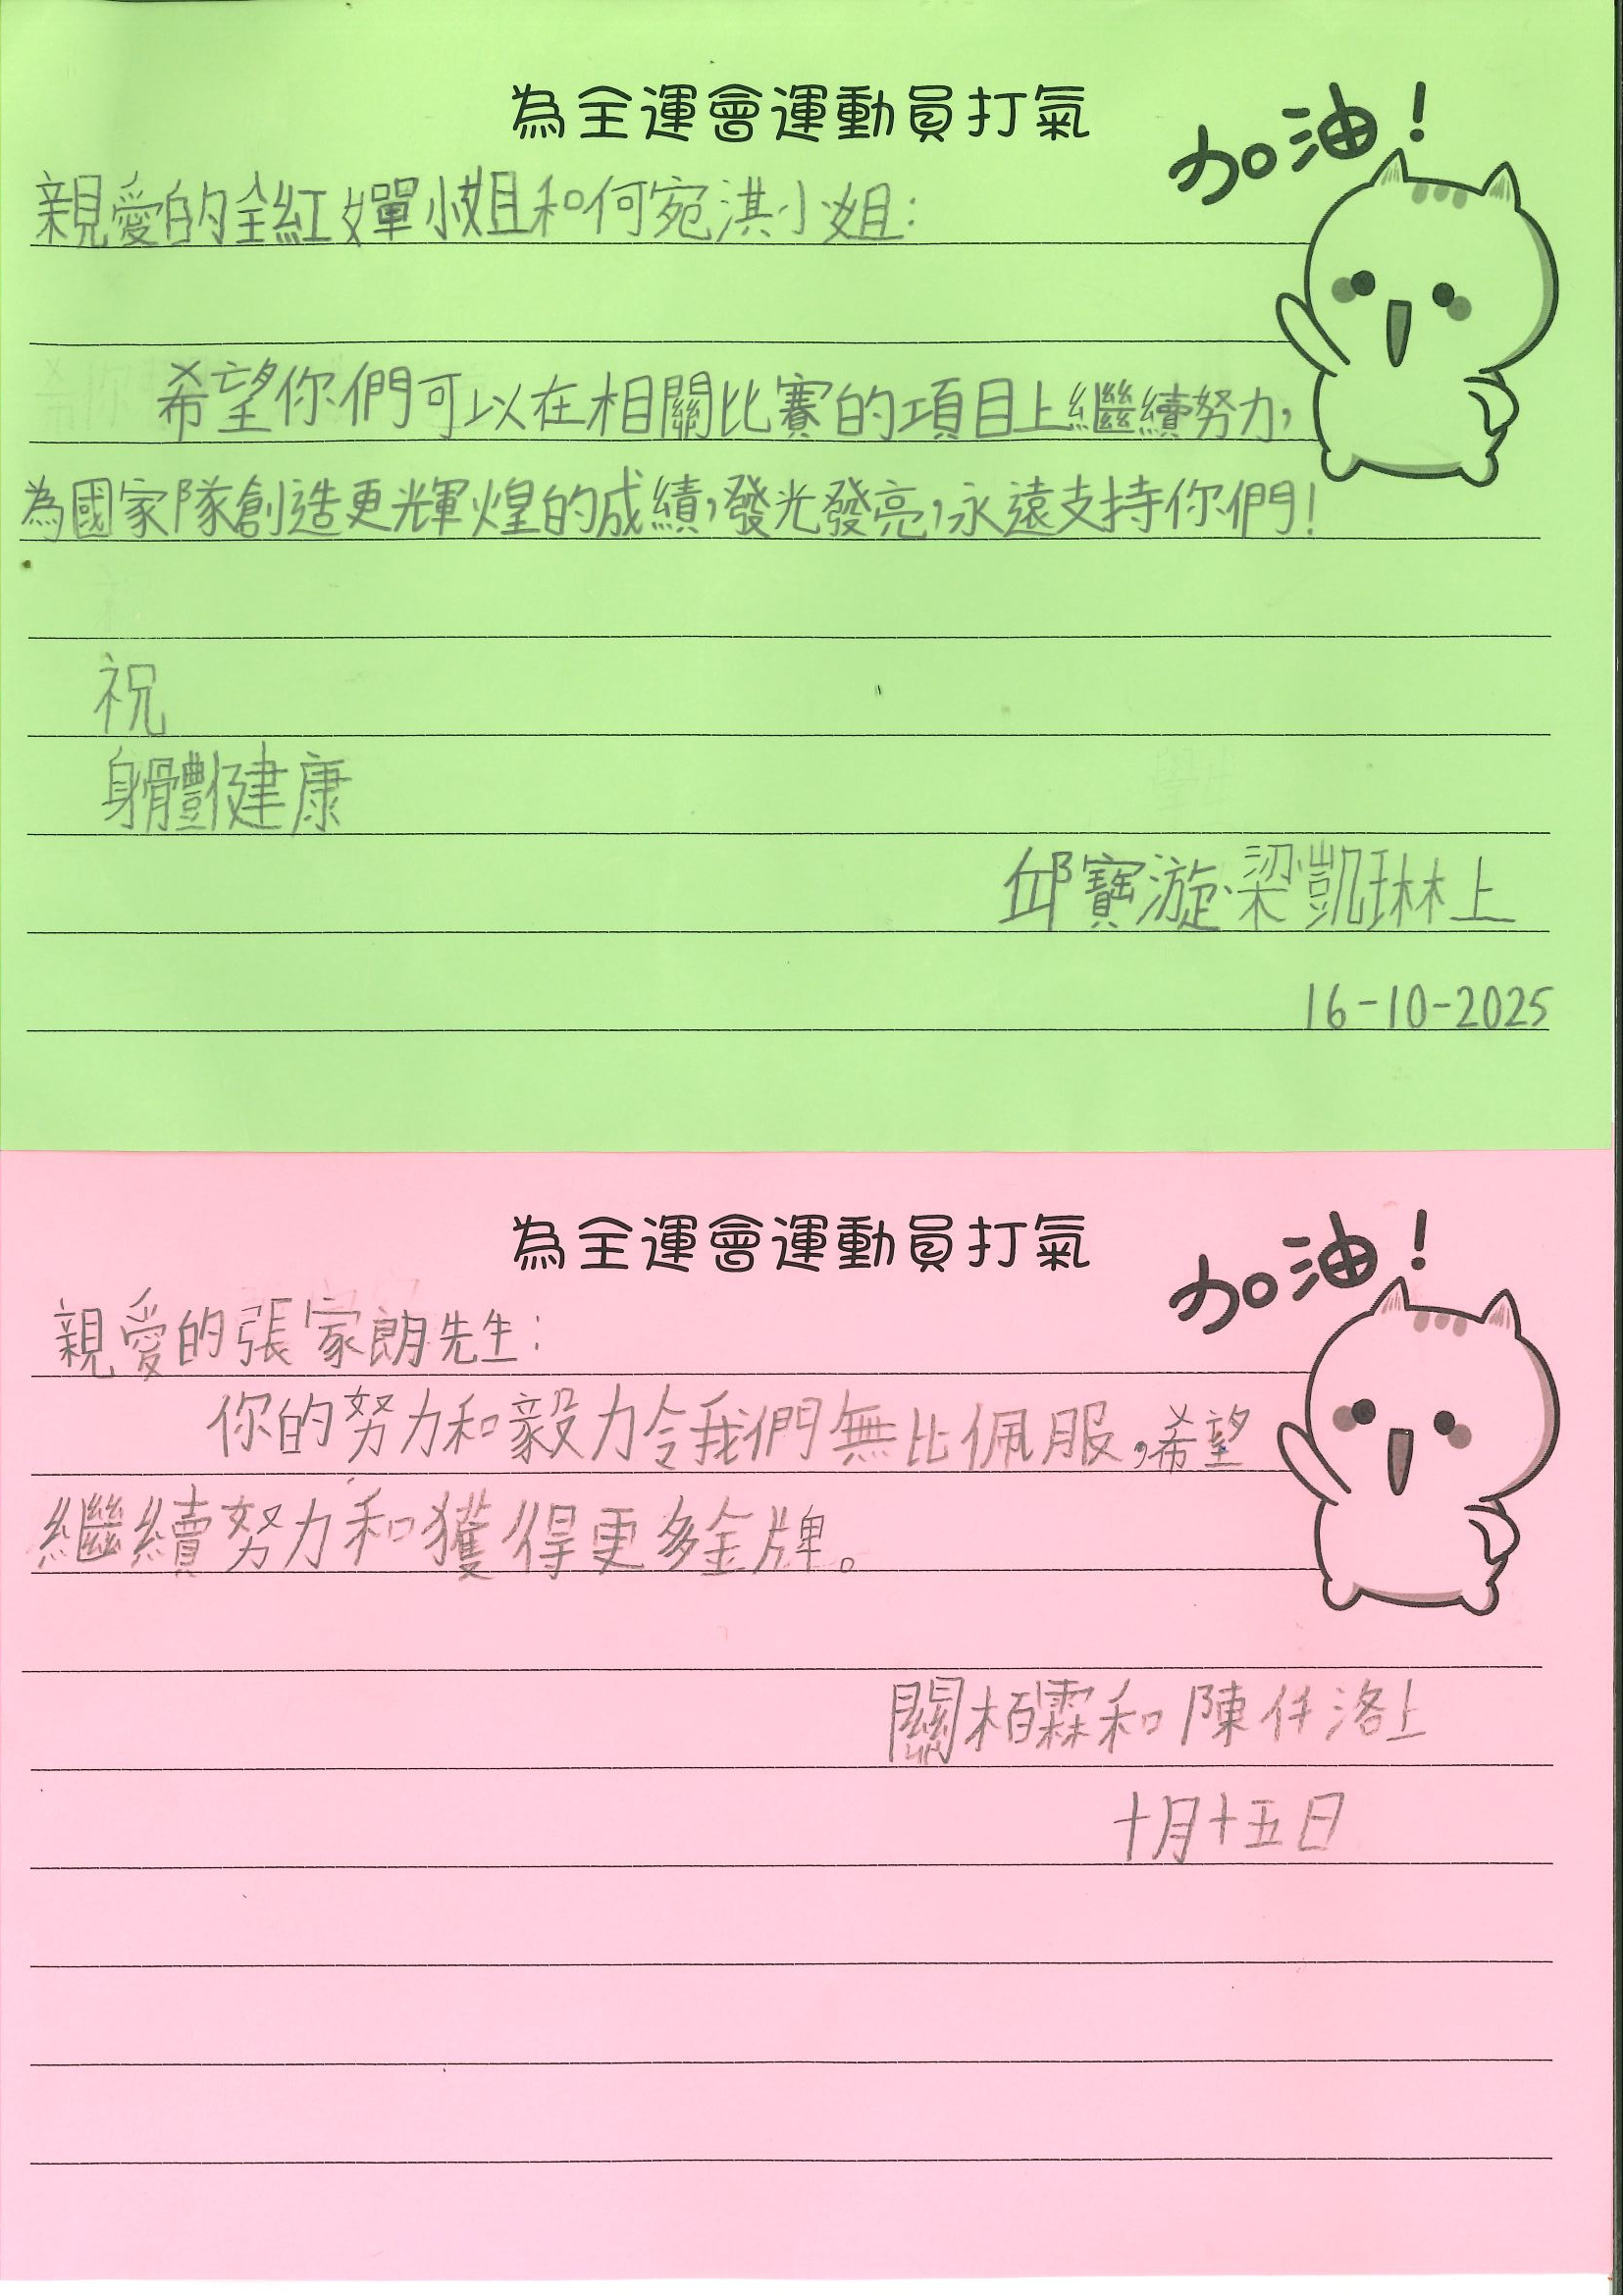 為全運會運動員打氣
加油！
親愛的全紅嬋小姐和何宛淇小姐：
希望你們可以在相關比賽的項目上繼續努力，
為國家隊創造更輝煌的成績，發光發亮，永遠支持你們！
祝
身體健康
邱寶漩、梁凱琳上
16-10-2025
為全運會運動員打氣
加油！
親愛的張家朗先生：
你的努力和毅力令我們無比佩服，希望
繼續努力和獲得更多金牌。
關栢霖和陳仟洛上
十月十五日